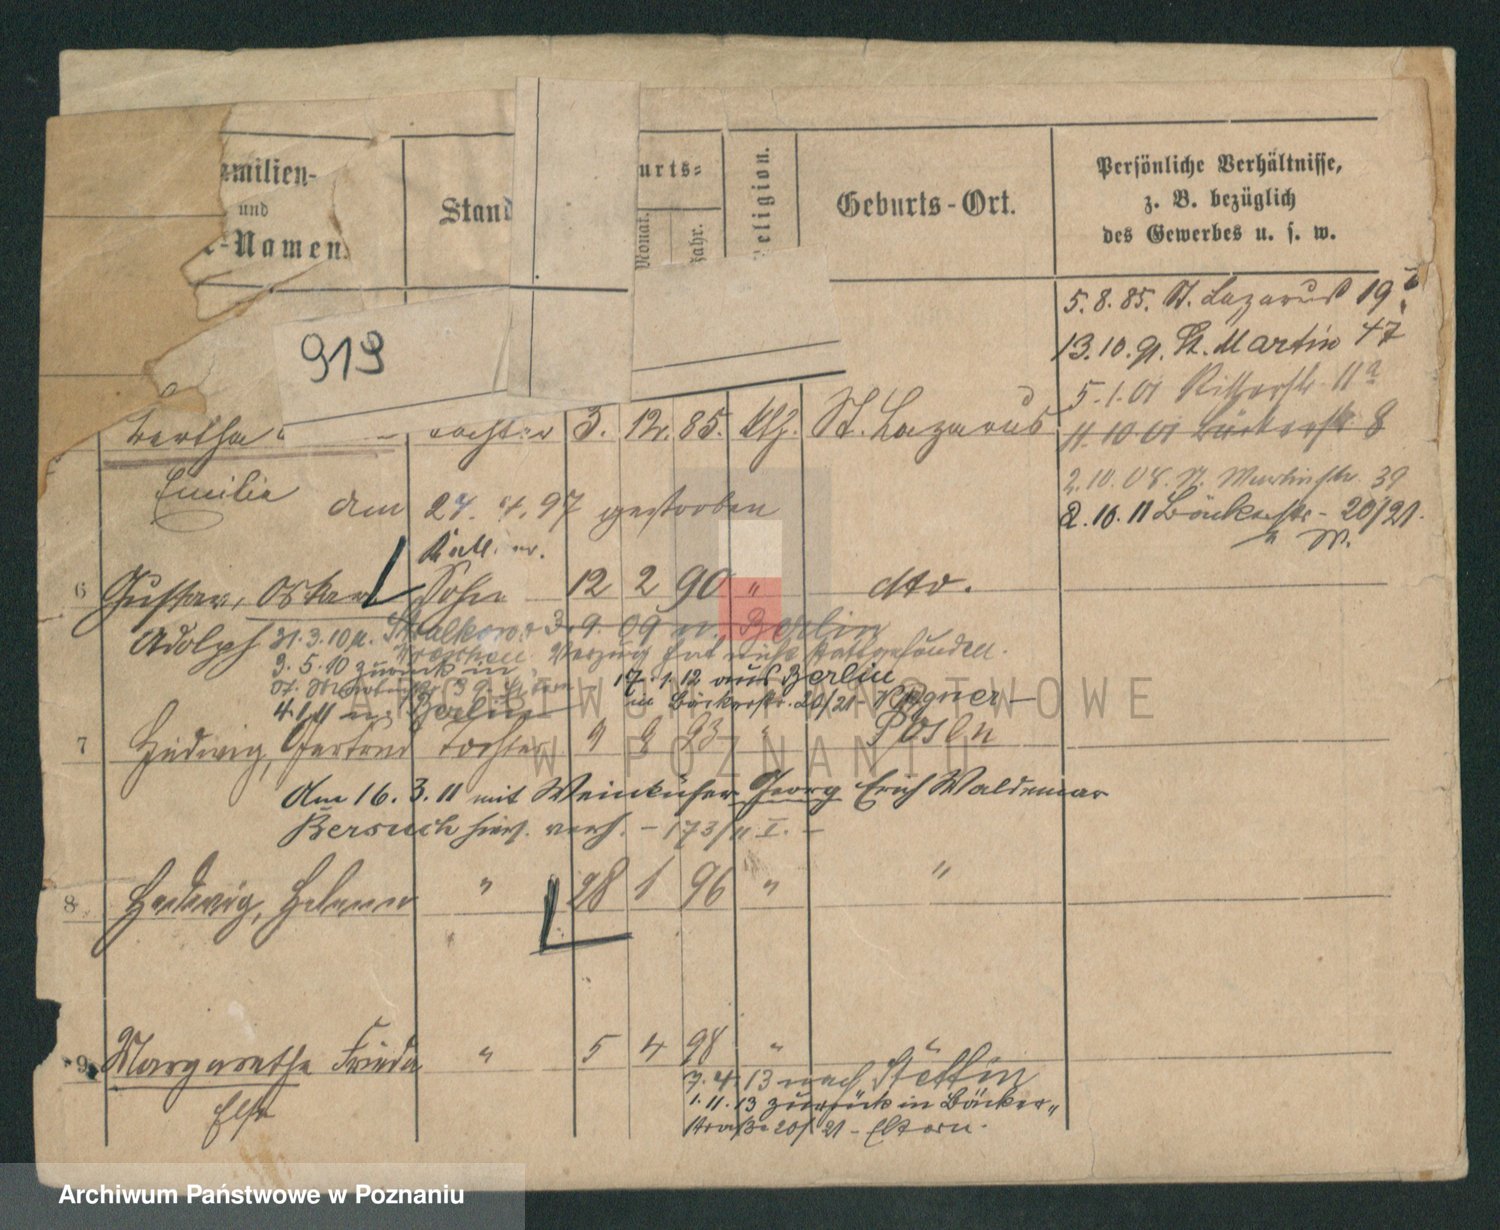 amilien-
und
-Namen.
Stand
urts-
Monat.
Jahr.
eligion.
Geburts-Ort.
Persönliche Verhältnisse,
z. B. bezüglich
des Gewerbes u. s. w.
919
5.8.85. St. Lazarus 19
13.10.91. St. Martin 47
5.1.01 Ritterstr. 11a
11.10 01 Bäckerstr 8
2.10.08. St. Martinstr. 39
2.10.11 Bäckerstr- 20/21.
Bertha
Tochter 3. 12. 85. kth. St. Lazarus
Emilie
am 24. 4. 97 gestorben
6 Gustav, Oskar Sohn 12 2 90 " dto.
Adolph 31.3.10 Stralkowo 3.9.09 n. Berlin
Wreschen. Verzug hat nicht stattgefunden.
3.5.10 zurück in
17.1.12 aus Berlin
in Bäckerstr. 20/21- Wegner-
4.1.11 n. Berlin
7 Hedwig, Gertrud Tochter 9 8 93 " Posen
Am 16.3.11 mit Weinküfer Georg Erich Waldemar
Bersuch hiers. verh. - 173/11 I. -
8. Hedwig, Helene " 28 1 96 " "
9. Margarethe Frieda " 5 4 98 " "
Else
7.4.13 nach Stettin
1.11.13 zurück in Bäcker-
straße 20/21 - Eltern.
ARCHIWUM PAŃSTWOWE
W POZNANIU
Archiwum Państwowe w Poznaniu